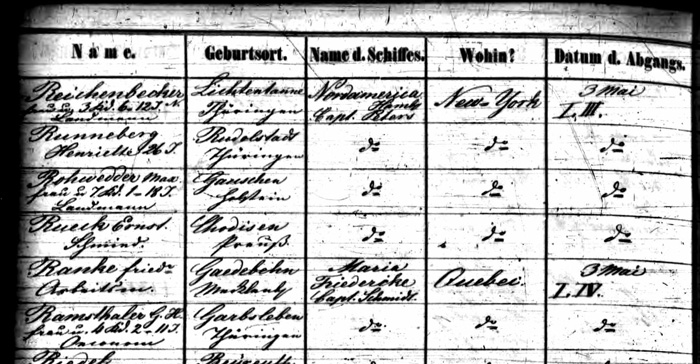 Name. Geburtsort. Name d. Schiffes. Wohin? Datum d. Abgangs.
Reichenbecher Lichtentanne Nordamerica New-York 3 Mai
frau u. 3 Kd. 6 - 12 J. Thüringen Hamb. I. III.
Landmann Capt. Peters
Runneberg Rudolstadt do do do
Henriette 26 J. Thüringen
Rohwedder Max do do do
frau u 7 Kd. 1 - 18 J. Holstein
Landmann
Rueck Ernst. Chodisen do do do
Schmied. Preuß.
Ranke friedr Gaedebehn Maria Quebec. 3 Mai
Arbeitsm. Mecklenb. Friedericke I. IV.
Capt. Schmidt.
Ramsthaler G. H. Garbsleben do do do
frau u. 4 Kd. 2 - 11 J. Thüringen
Oeconom
Riedek